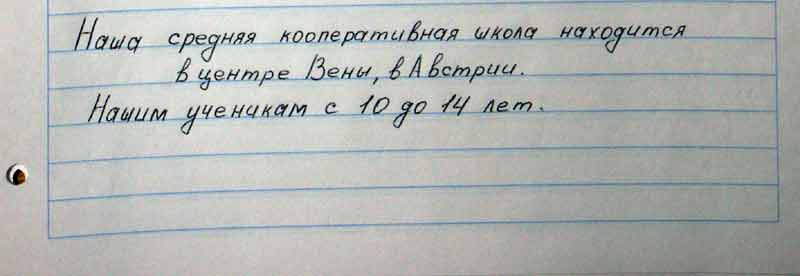 Наша средняя кооперативная школа находится
в центре Вены, в Австрии.
Нашим ученикам с 10 до 14 лет.